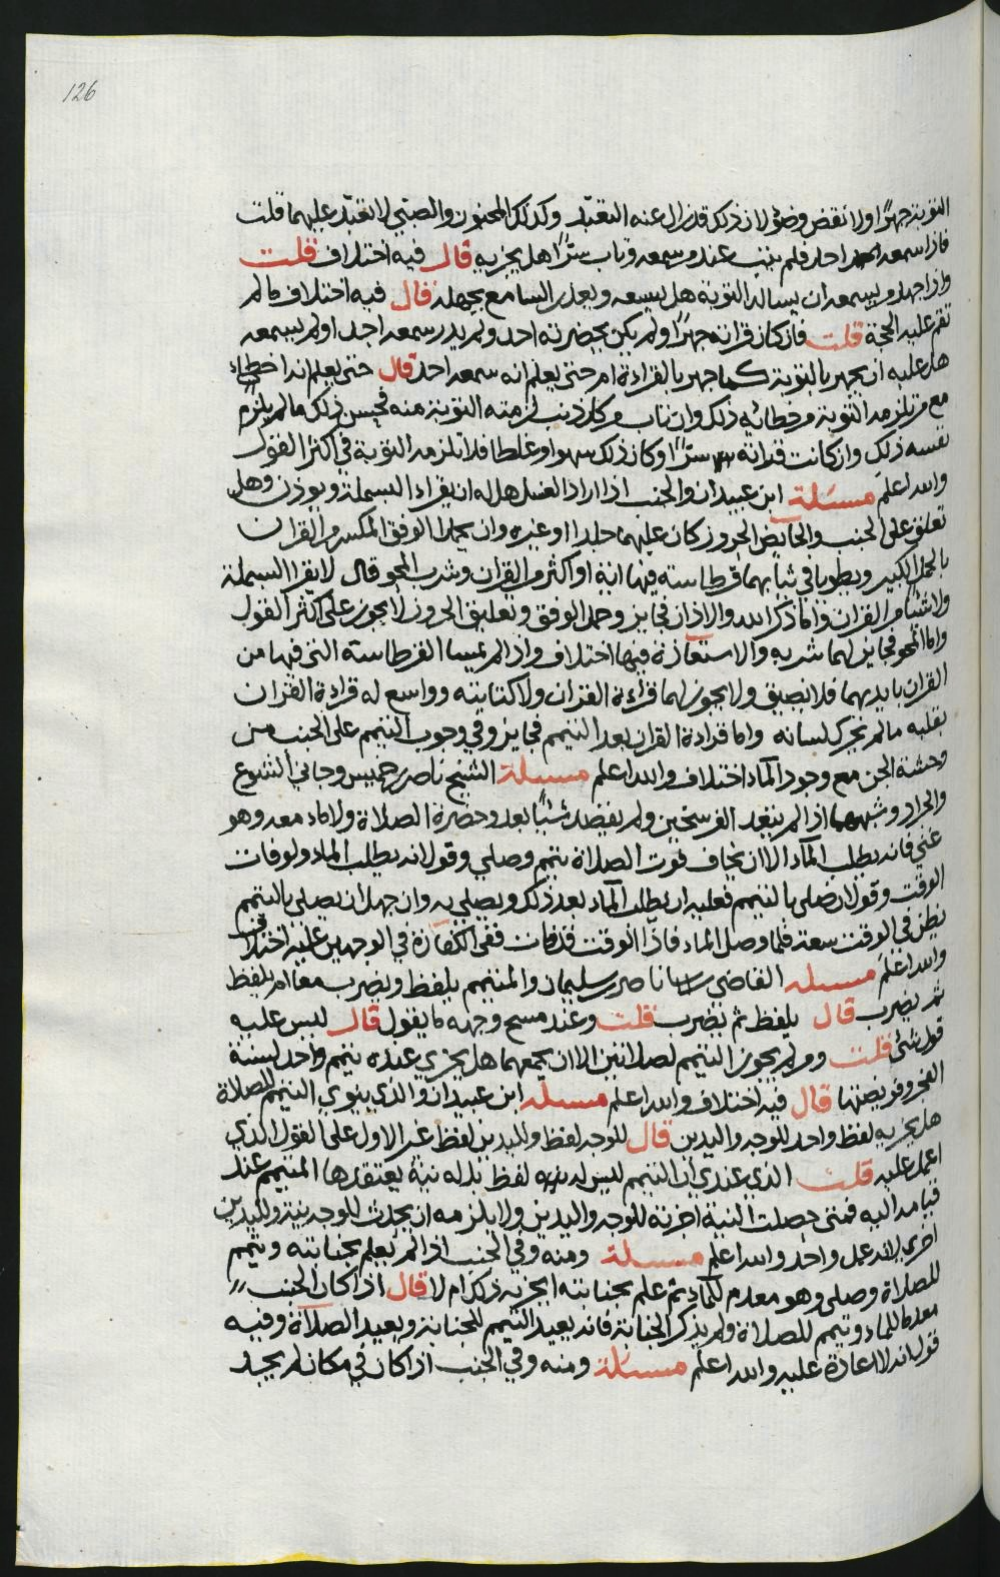 126
التوبة جهرًا ولا نقض وضؤه لان ذلك قد زال عنه التعبد وكذلك المجنون والصبي لا تعبد عليهما قلت
فاذا سمعه احد فلم يتب عند من سمعه وتاب سرًّا هل يجزيه قال فيه اختلاف قلت
واذا جهل من يسمعه ان يساله التوبة هل يسعه ويعذر السامع بجهله قال فيه اختلاف ما لم
تقم عليه الحجة قلت فان كان قراته جهرًا ولم يكن بحضرته احد ولم يدر سمعه احد او لم يسمعه
هل عليه ان يجهر بالتوبة كما جهر بالقراءة ام حتى يعلم انه سمعه احد قال حتى يعلم انه اخطاء
مع من تلزمه التوبة من خطائه ذلك وان تاب من كل ذنب لزمته التوبة منه فحسن ذلك ما لم يلزم
نفسه ذلك وان كانت قراته سرًّا وكان ذلك سهوا وغلطا فلا تلزمه التوبة في اكثر القول
والله اعلم مسئلة ابن عبيدان والجنب اذا اراد الغسل هل له ان يقراء البسملة ويوذن وهل
تعلق على الجنب والحايض الحروز كان عليهما جلدا او غيره وان يحملا الوفق المكسر من القران
بالجمل الكبير ويطويا في ثيابهما قرطاسته فيها اية او اكثر من القران وشرب المحو قال لا يقرا البسملة
ولا شيئا من القران واما ذكر الله والاذان فجايز وحمل الوفق وتعليق الحروز لا يجوز على اكثر القول
واما المحو فجايز لهما شربه والاستعاذة فيها اختلاف واذا لم يمسا القرطاسة التي فيها من
القران بايديهما فلا نضيق ولا يجوز لهما قراءة القران ولا كتابته وواسع له قراءة القران
بقلبه ما لم يحرك لسانه واما قراءة القران بعد التيمم فجايز وفي وجوب التيمم على الجنب من
وحشة الجن مع وجود المآء اختلاف والله اعلم مسئلة الشيخ ناصر بن خميس وجاني الشوع
والجراد وشبههما اذا لم يتعد الفرسخين ولم يقصد شيئًا بعد وحضرة الصلاة ولا ماء معه وهو
غني فانه يطلب المآء الا ان يخاف فوت الصلاة يتيمم وصلي وقول انه يطلب الماء ولو فات
الوقت وقول ان صلى بالتيمم فعليه ان يطلب المآء بعد ذلك ويصلي به وان جهل ان يصلي بالتيمم
يظن في الوقت سعة فلما وصل الماء فاذا الوقت قد فات ففي الكفارة في الوجهين عليه اختلاف
والله اعلم مسئله القاضي ناصر بن سليمان والمتيمم يلفظ ويضرب معا ام يلفظ
ثم يضرب قال يلفظ ثم يضرب قلت وعند مسح وجهه ما يقول قال ليس عليه
قول شئ قلت ومن لم يجوز التيمم لصلاتين الا ان يجمعهما هل يجزي عنده تيمم واحد لسنة
الفجر وفريضتها قال فيه اختلاف والله اعلم مسئله ابن عبيدان والذي ينوي التيمم للصلاة
هل يجزيه لفظ واحد للوجه واليدين قال للوجه لفظ ولليدين لفظ غير الاول على القول الذي
اعمل عليه قلت الذي عندي ان التيمم ليس له لفظ بل له نية يعتقدها المتيمم عند
قيامه اليه فمتى حصلت النية اجزته للوجه واليدين ولا يلزمه ان يحدث للوجه نية ولليدين
اخرى لانه عمل واحد والله اعلم مسئلة ومنه وفي الجنب اذا لم يعلم بجنابته وتيمم
للصلاة وصلى وهو معدم للمآء ثم علم بجنابته ايجزيه ذلك ام لا قال اذا كان الجنب
معدما للماء وتيمم للصلاة ولم يذكر الجنابة فانه يعيد التيمم للجنابة ويعيد الصلاة وفيه
قول انه لا اعادة عليه والله اعلم مسئلة ومنه وفي الجنب اذا كان في مكان لم يجد